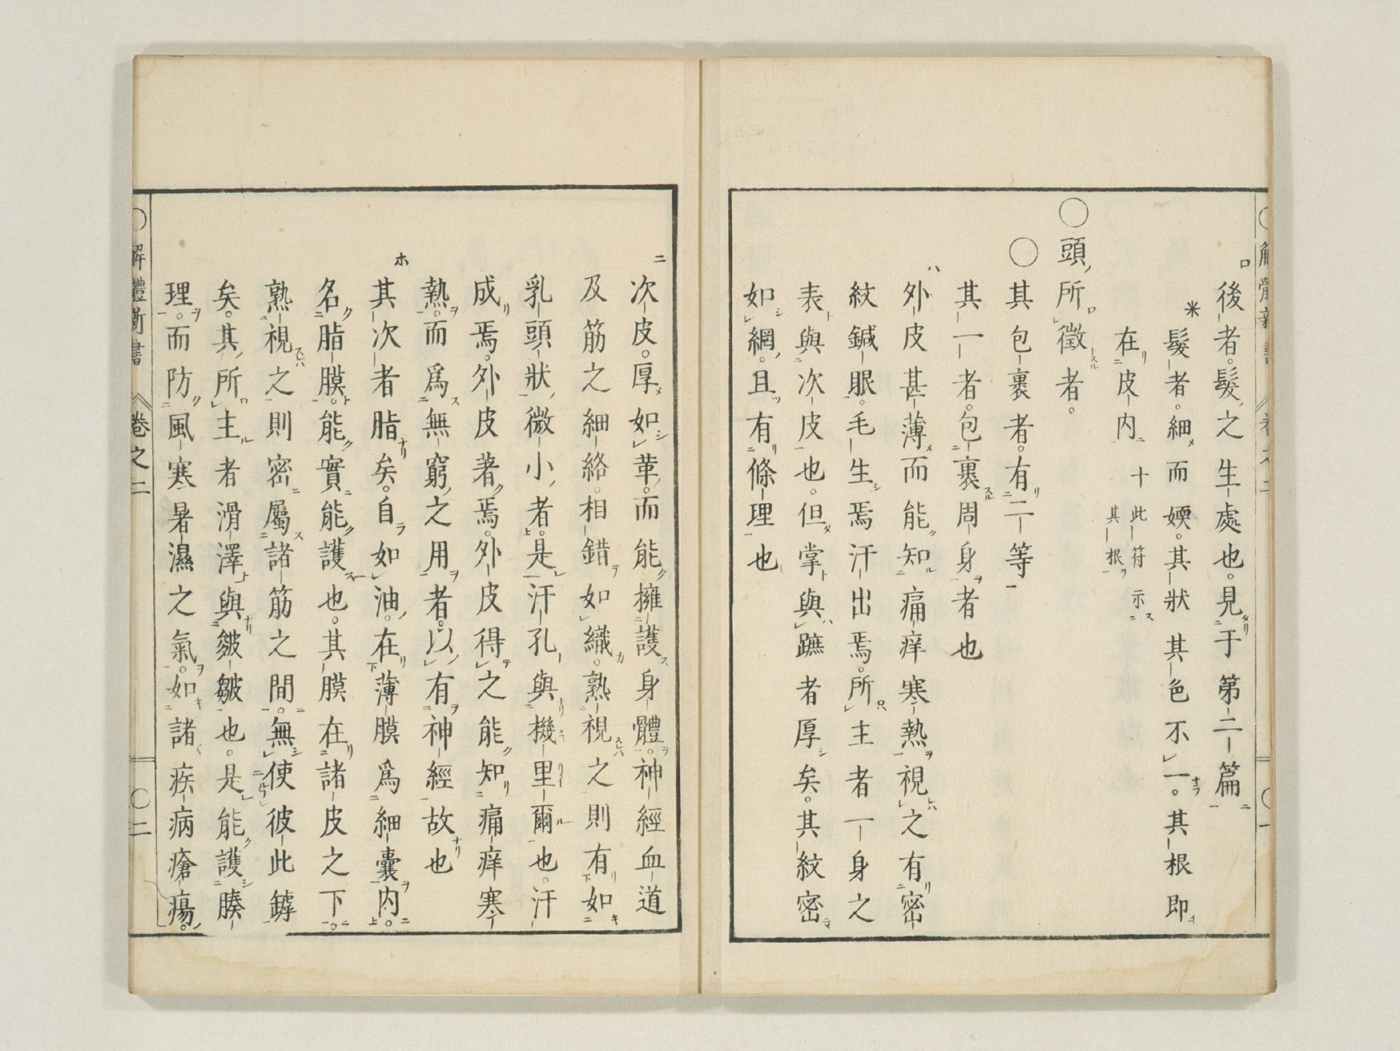 後者。髮之生處也。見于第二篇
髮者。細而㜛。其狀其色不一。其根即
在皮内 十此符示其根
◯頭所徵者。
◯其包裹者。有二等
其一者。包裹周身者也
外皮甚薄而能知痛痒寒熱視之有密
紋鍼眼。毛生焉汗出焉。所主者一身之
表與次皮也。但掌與蹠者厚矣。其紋密
如網。且有條理也
次皮。厚如革。而能擁護身體。神經血道
及筋之細絡。相錯如織。熟視之則有如
乳頭狀微小者。是汗孔與機里爾也。汗
成焉。外皮著焉。外皮得之能知痛痒寒
熱。而爲無窮之用者。以有神經故也
其次者脂矣。自如油。在薄膜爲細囊内。
名脂膜。能實能護也。其膜在諸皮之下。
熟視之則密屬諸筋之間。無使彼此罅
矣。其所主者滑澤與皺皺也。是能護腠
理。而防風寒暑濕之氣。如諸疾病瘡瘍。
解體新書 卷之二 ◯二